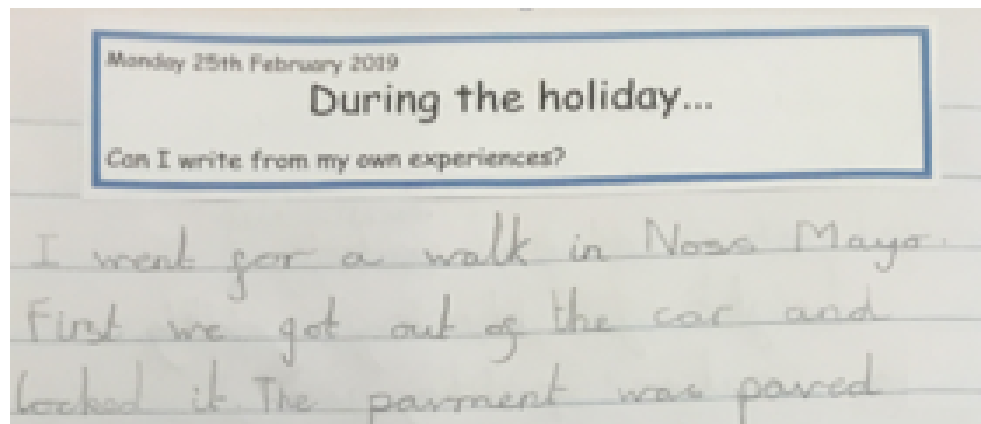 Monday 25th February 2019
During the holiday...
Can I write from my own experiences?
I went for a walk in Noss Mayo.
First we got out of the car and
locked it. The parment was paved